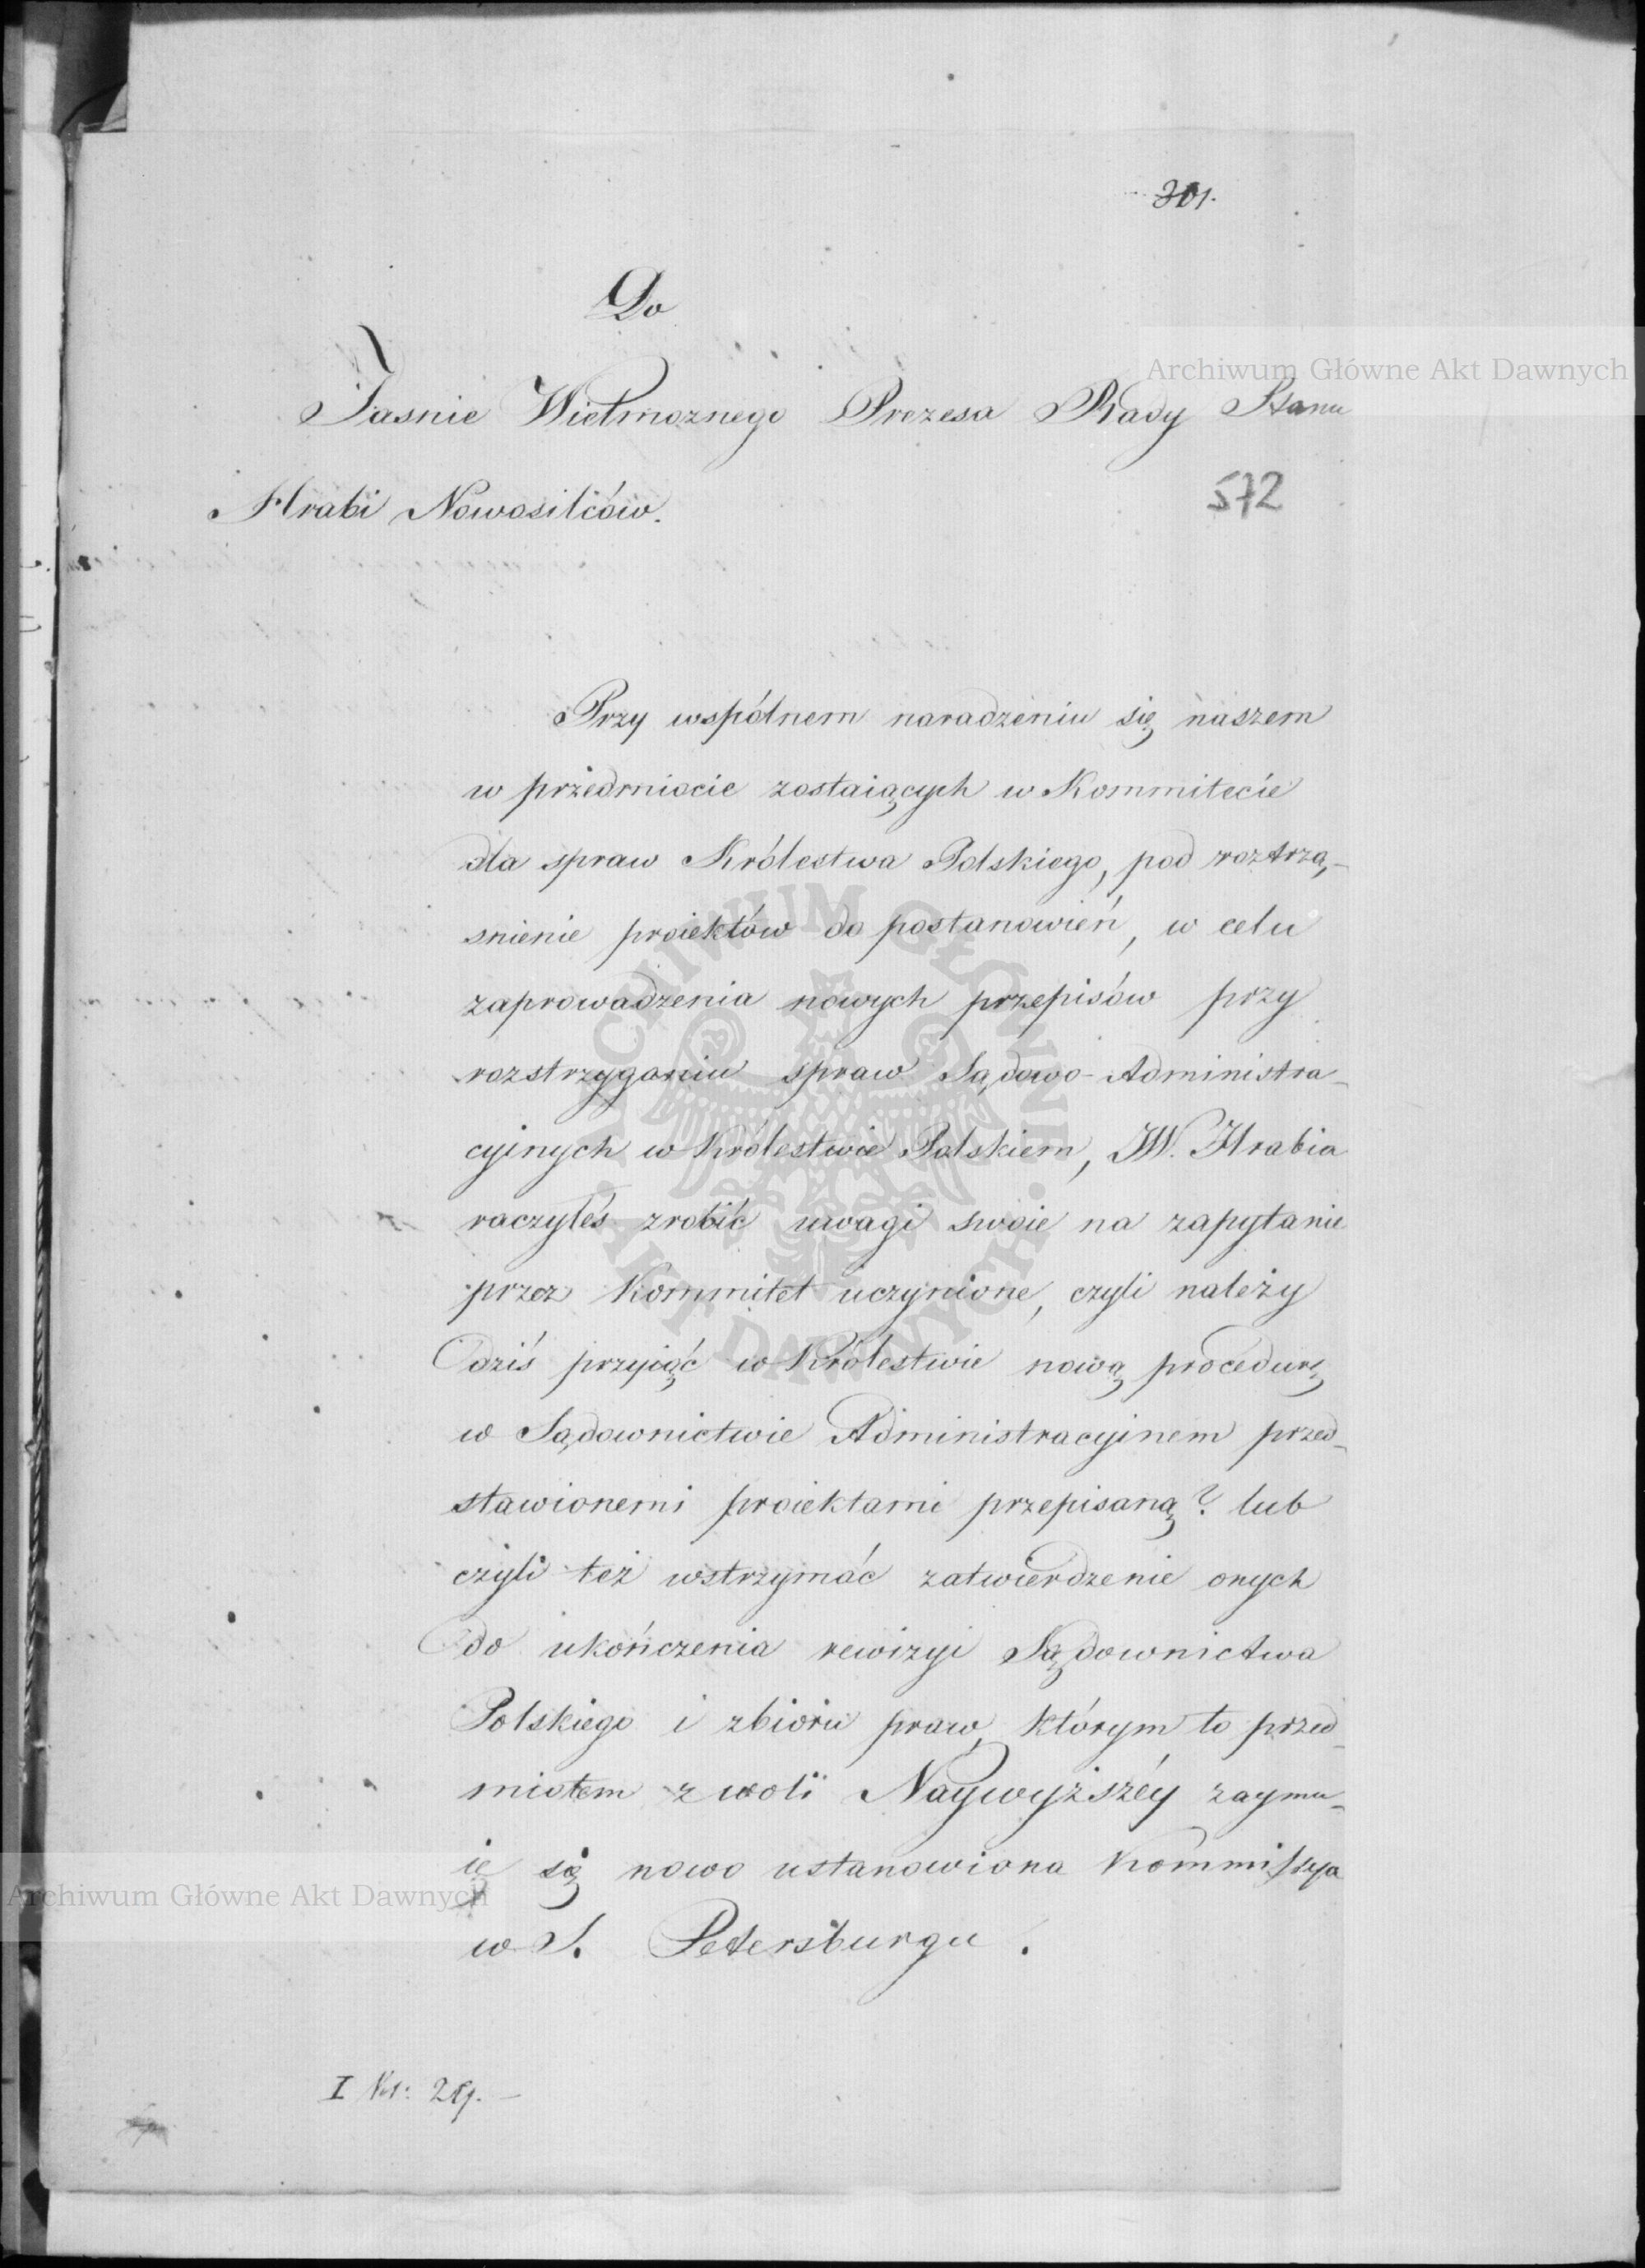 301.
Do
Jasnie Wielmoznego Prezesa Rady Stanu
Hrabi Nowosilców.
572
Przy wspólnem naradzeniu się naszem
w przedmiocie zostaiących w Kommitecie
dla spraw Królestwa Polskiego, pod roztrzą-
snienie proiektów do postanowień, w celu
zaprowadzenia nowych przepisów przy
rozstrzyganiu spraw Sądowo-Administra-
cyinych w Królestwie Polskiem, JW. Hrabia
raczyłeś zrobić uwagi swoie na zapytanie
przez Kommitet uczynione, czyli należy
dziś przyiąć w Królestwie nową procedurę
w Sądownictwie Administracyinem przed-
stawionemi proiektami przepisaną? lub
czyli też wstrzymać zatwierdzenie onych
do ukończenia rewizyi Sądownictwa
Polskiego i zbioru praw, którym to przed-
miotem z woli Naywyższéy zaymu-
ie się nowo ustanowiona Kommissya
w S. Petersburgu.
I
Archiwum Główne Akt Dawnych
Archiwum Główne Akt Dawnych
ARCHIWUM GŁÓWNE · AKT DAWNYCH ·